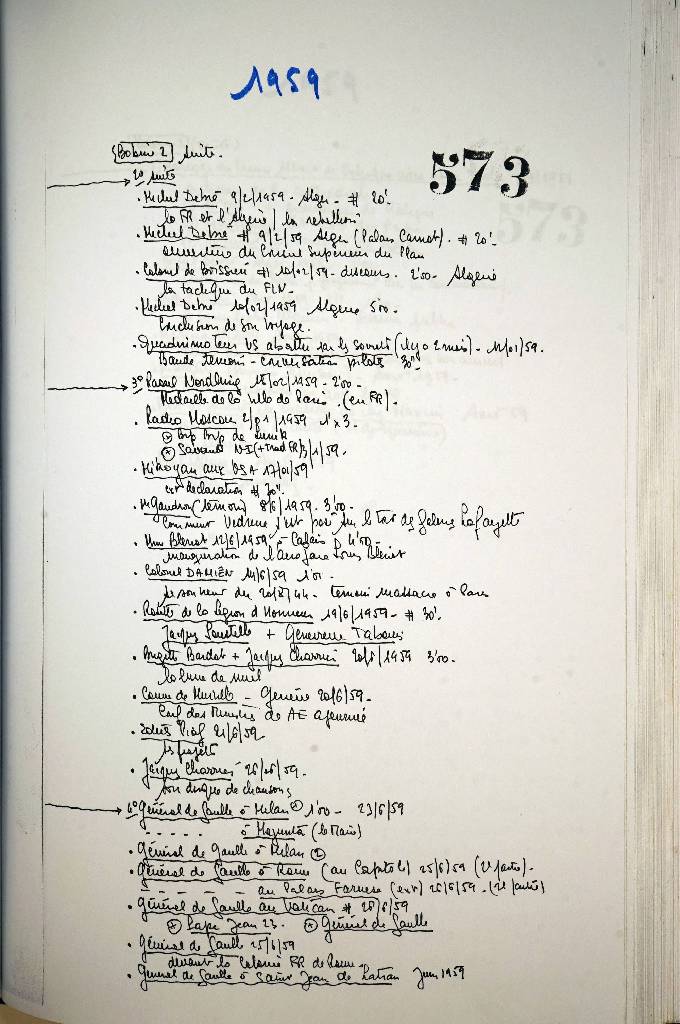 1959
573
Bobine 2 suite.
2° suite
. Michel Debré 9/2/1959 - Alger - # 20'-
la FR et l'Algérie / la rébellion
. Michel Debré # 9/2/59 Alger (Palais Carnot). # 20'-
du Conseil Supérieur du Plan
Colonel de Boissieu # 10/02/59 - discours. 2'00 - Algérie
la tactique du FLN -
. Michel Debré 10/02/1959 Algérie 5'00 -
Conclusion de son voyage.
. Quadrimoteur US abattu par les soviets (il y a 2 mois) - 11/01/59.
Bande témoin - conversation pilots 30"
3° Raoul Nordling 18/02/1959 - 2'00 -
Médaille de la Ville de Paris. (en FR).
. Radio Moscou 2/01/1959 1' x 3.
Bip Bip de
Savants (+ Trad FR) 3/1/59.
. Mikoyan aux USA 17/01/59
ext déclaration # 30".
. Mr Gaudron (témoin) 8/6/1959. 3'00 -
Comment Vedrine s'est posé sur le toit des Galeries Lafayette
. Mme Blériot 12/6/1959 à Calais 4'00 -
inauguration de l'aérogare Louis Blériot
. Colonel DAMIEN 14/6/59 1'01 -
du 20/8/44 - témoin massacre à Paris
. de la Légion d'Honneur - 19/6/1959 - # 30'.
Jacques Soustelle + Geneviève Tabouis
. Brigitte Bardot + Jacques Charrier 20/6/1959 3'00 -
la lune de miel
. Couve de Murville - Genève 20/6/59 -
Conf des Ministres de AE ajournée
. Edith Piaf 21/6/59 -
ses projets
. Jacques Charrier 26/06/59 -
son disque de chansons
4° Général de Gaulle à Milan ① 1'00 - 23/6/59
- - - - - à Magenta (le Maire)
. Général de Gaulle à Milan ②
. Général de Gaulle à Rome (au Capitole) 25/6/59 (1e partie) -
- - - - - au Palais Farnese (ext) 26/6/59 - (2e partie)
. Général de Gaulle au Vatican # 28/6/59
Pape Jean 23. Général de Gaulle
. Général de Gaulle 25/6/59
devant la Colonie FR de Rome -
. Général de Gaulle à Saint Jean de Latran Juin 1959